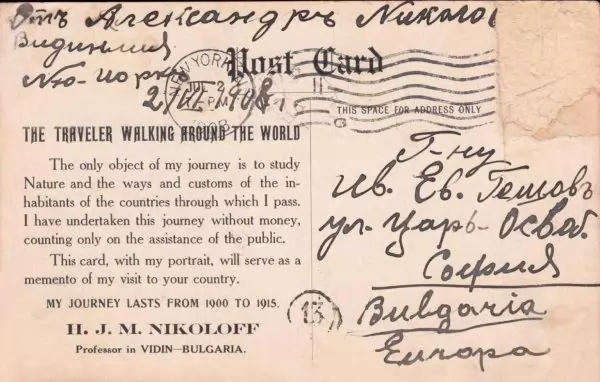 Отъ Александръ Николо
Видинлия
Ню-Йоркъ
2/VII-1908
NEW YORK
JUL 2
PM
1908
Post Card
THIS SPACE FOR ADDRESS ONLY
THE TRAVELER WALKING AROUND THE WORLD
The only object of my journey is to study
Nature and the ways and customs of the in-
habitants of the countries through which I pass.
I have undertaken this journey without money,
counting only on the assistance of the public.
This card, with my portrait, will serve as a
memento of my visit to your country.
MY JOURNEY LASTS FROM 1900 TO 1915.
H. J. M. NIKOLOFF
Professor in VIDIN—BULGARIA.
13
Г-ну
Ив. Ев. Гешовъ
ул. Царь-Освоб.
София
Bulgaria
Europa